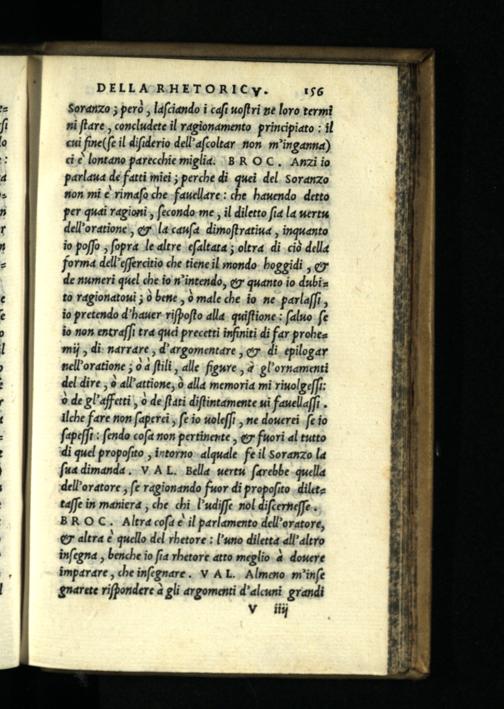 DELLA RHETORICV. 156
Soranzo; però, lasciando i casi uostri ne loro termi
ni stare, concludete il ragionamento principiato: il
cui fine(se il disiderio dell'ascoltar non m'inganna)
ci è lontano parecchie miglia. BROC. Anzi io
parlaua de fatti miei; perche di quei del Soranzo
non mi è rimaso che fauellare: che hauendo detto
per quai ragioni, secondo me, il diletto sia la uertu
dell'oratione, & la causa dimostratiua, inquanto
io posso, sopra le altre esaltata; oltra di ciò della
forma dell'essercitio che tiene il mondo hoggidi, &
de numeri quel che io n'intendo, & quanto io dubi=
to ragionatoui; ò bene, ò male che io ne parlassi,
io pretendo d'hauer risposto alla quistione: saluo se
io non entrassi tra quei precetti infiniti di far prohe=
mij, di narrare, d'argomentare, & di epilogar
nell'oratione; ò à stili, alle figure, à gl'ornamenti
del dire, ò all'attione, ò alla memoria mi riuolgessi:
ò de gl'affetti, ò de stati distintamente ui fauellassi.
ilche fare non saperei, se io uolessi, ne douerei se io
sapessi: sendo cosa non pertinente, & fuori al tutto
di quel proposito, intorno alquale fe il Soranzo la
sua dimanda. VAL. Bella uertu sarebbe quella
dell'oratore, se ragionando fuor di proposito dilet=
tasse in maniera, che chi l'udisse nol discernesse.
BROC. Altra cosa è il parlamento dell'oratore,
& altra è quello del rhetore: l'uno diletta all'altro
insegna, benche io sia rhetore atto meglio à douere
imparare, che insegnare. VAL. Almeno m'inse
gnarete rispondere à gli argomenti d'alcuni grandi
V iiij